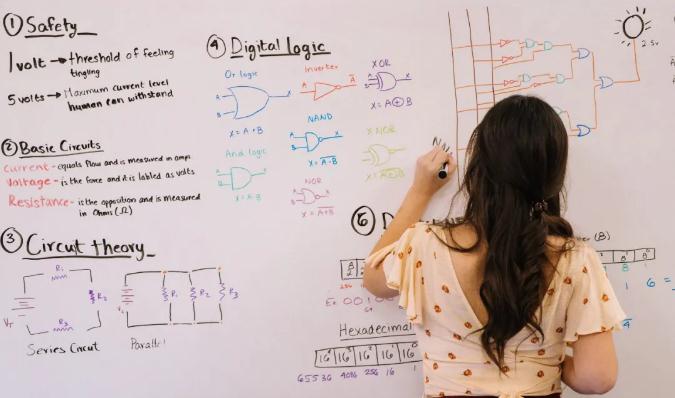 ① Safety
1 volt → threshold of feeling
tingling
5 volts → Maximum current level
human can withstand
② Basic Circuits
Current - equals flow and is measured in amp
Voltage - is the force and it is labled as volts
Resistance - is the opposition and is measured
in Ohms (Ω)
③ Circuit theory
R1
R2
R3
VT
Series Circuit
R1
R2
R3
Parallel
④ Digital logic
Or logic
A
B
X
X = A + B
Inverter
A
A̅
XOR
A
B
X
X = A ⊕ B
NAND
A
B
X
And logic
A
B
X
X NOR
NOR
2.5v
⑤ D
(B)
Hexadecimal
16⁴ 16³ 16² 16¹ 16⁰
65536 4096 256 16 1
1 6 =